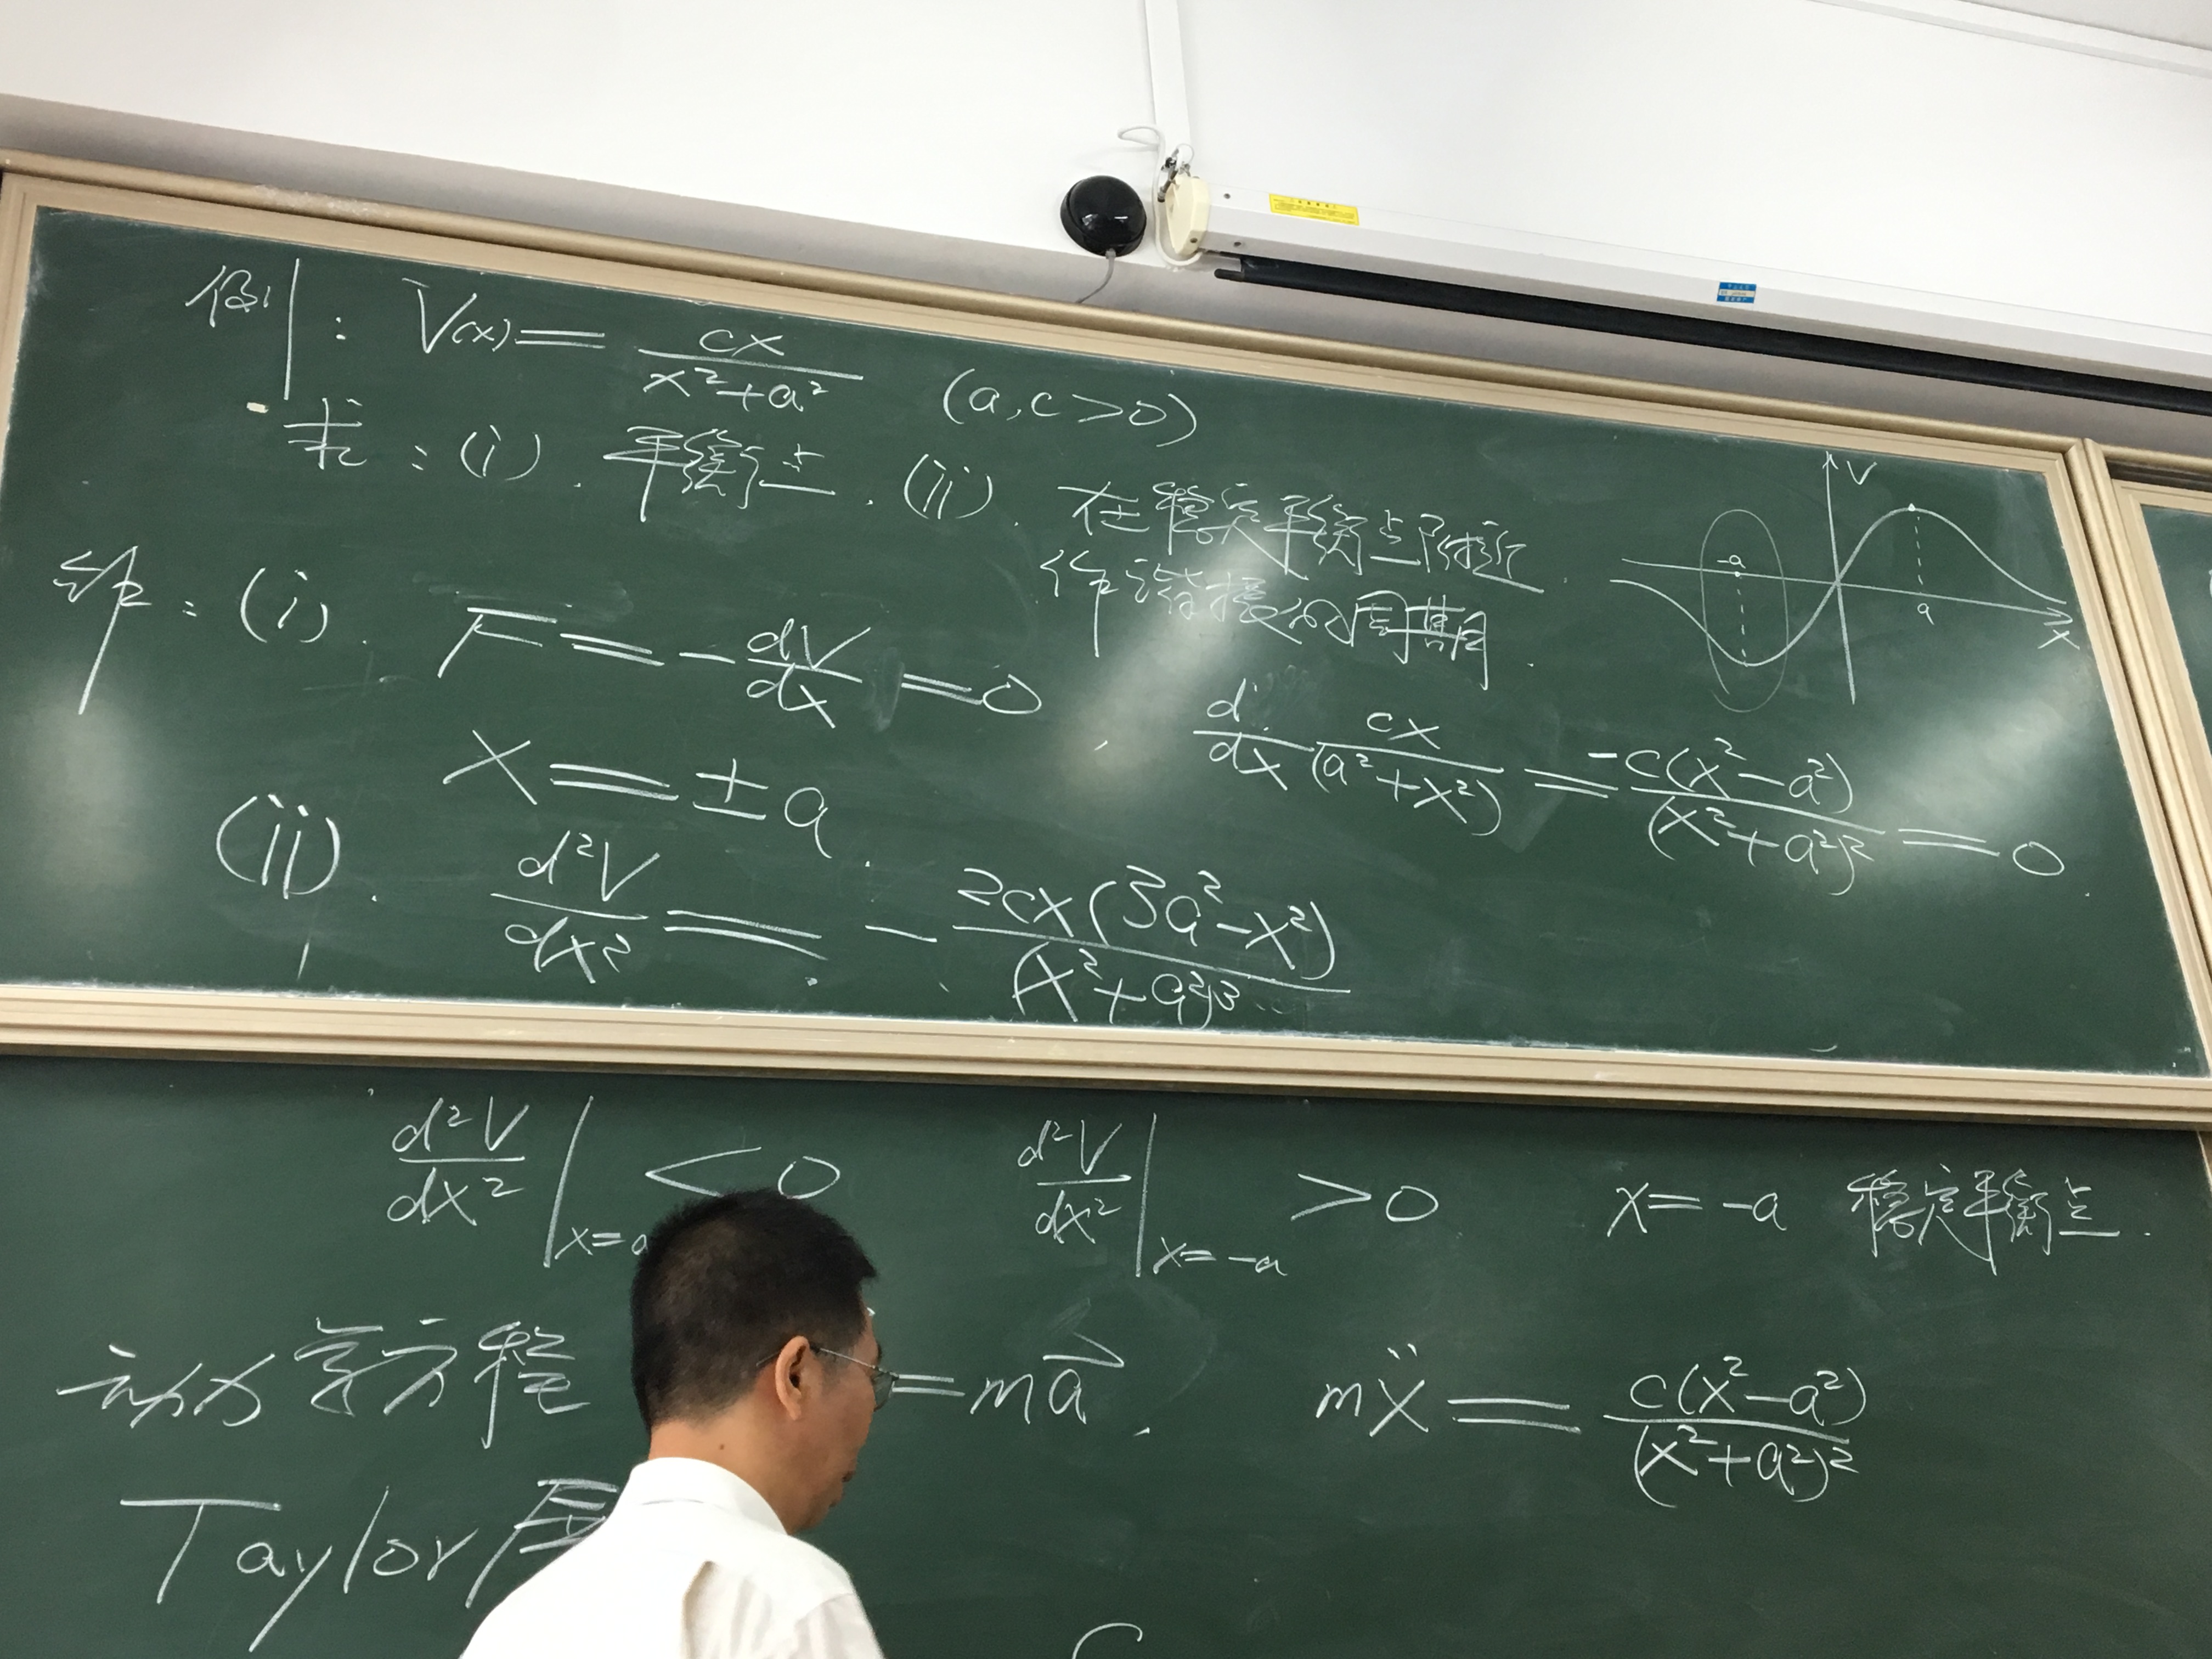 例: V(x) = cx/(x²+a²) (a,c>0)
求:(i). 平衡点.(ii). 在稳定平衡点附近
作谐振的周期.
解:(i). F = -dV/dx = 0
x = ±a.
d/dx cx/(a²+x²) = -c(x²-a²)/(x²+a²)² = 0.
V
-a
a
x
(ii). d²V/dx² = - 2cx(3a²-x²)/(x²+a²)³
d²V/dx² |x=a <0 d²V/dx² |x=-a >0 x=-a 稳定平衡点.
动力学方程 =ma⃗. mẍ = c(x²-a²)/(x²+a²)²
Taylor